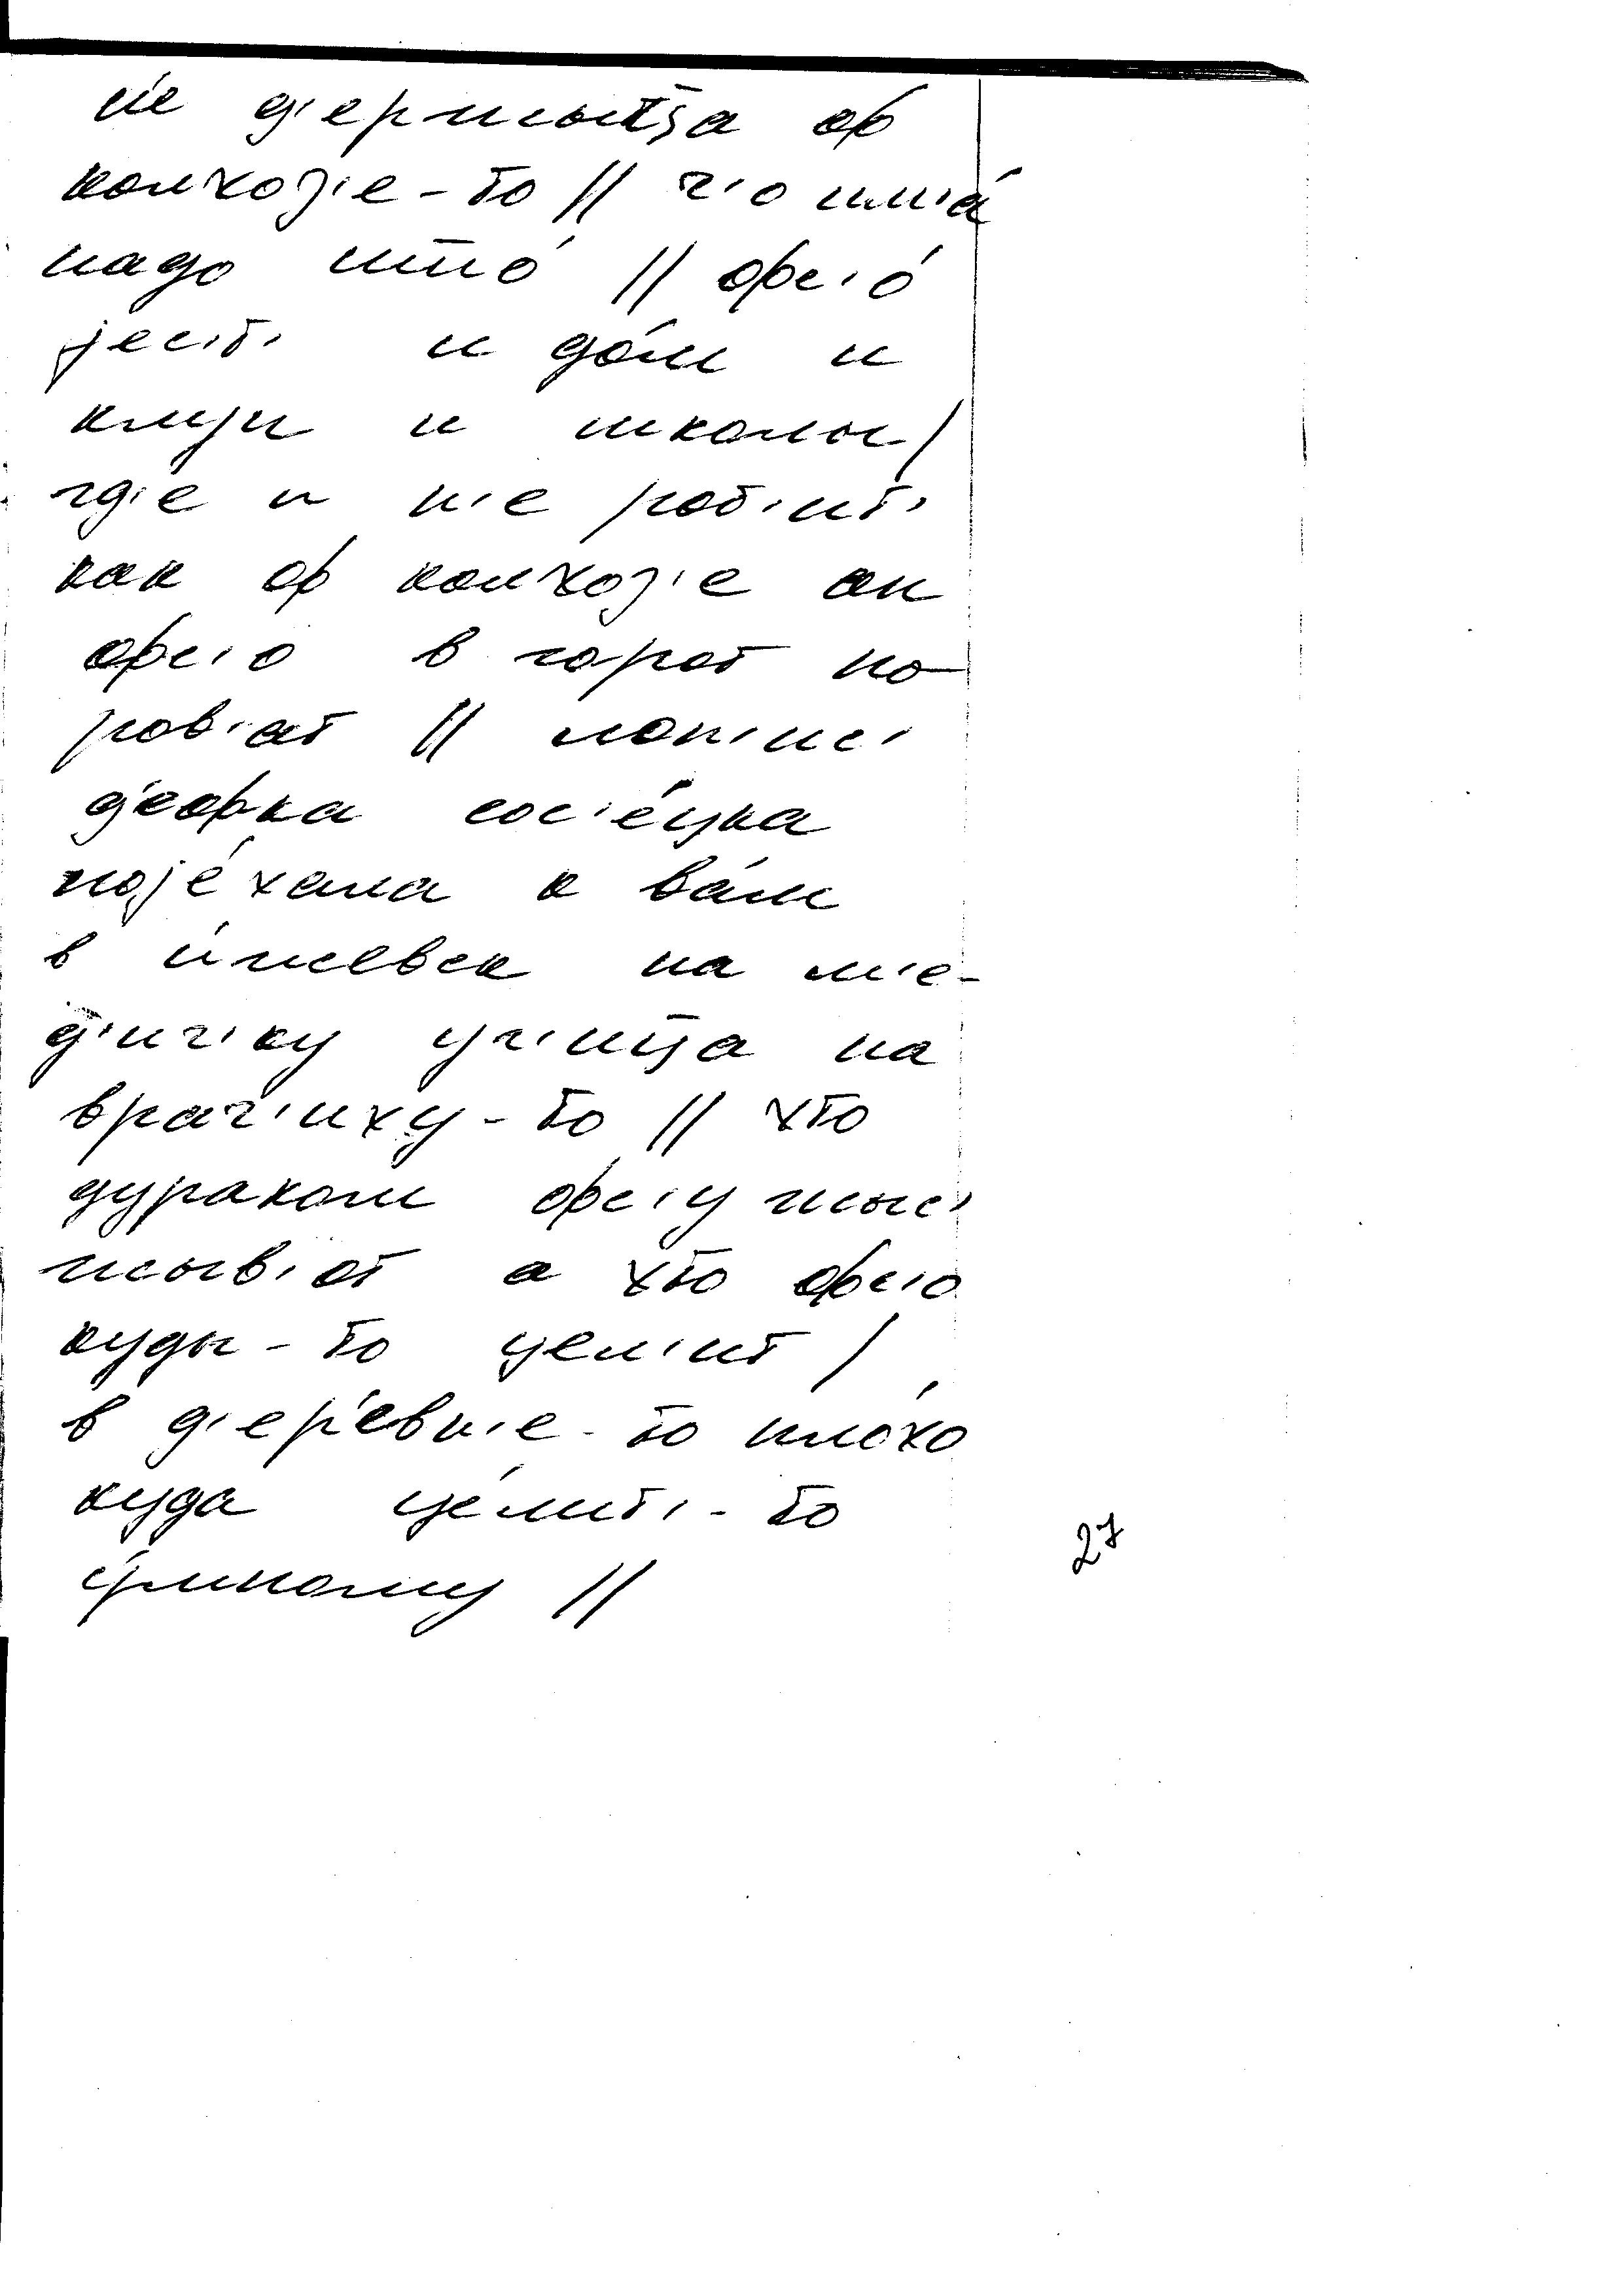 н'е д'ержыцца оф
колхоз'е-то // ч'о имја́
надо што́ // офс'о́
јес'т' и до́м и
клуп и школы /
гд'е и н'е роб'ит'
как оф колхоз'е он
офс'о в горот по-
ров'ат // лон'ис'
д'еофка сос'е́цка
пој'е́хала к ва́м
в и́жевск на м'е-
д'ич'ку уч'ицца на
врач'иху-то // хто
дураком офс'у жыс'
жыв'от а хто офс'о
куды-то цел'ит /
в д'ер'е́вн'е-то пло́хо
куда це́лит'-то
у́мному //
27